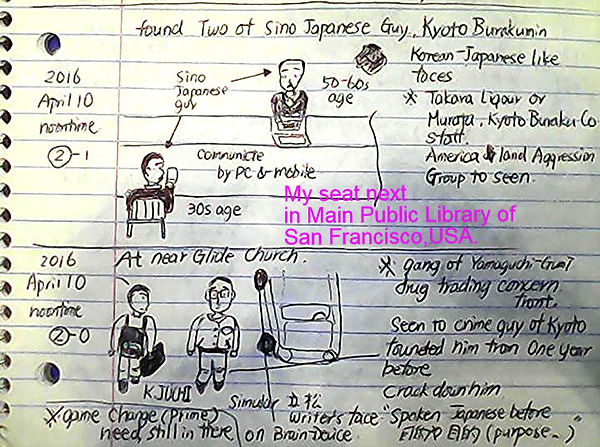 found Two of Sino Japanese Guy., Kyoto Burakumin
Korean-Japanese like
faces
2016
April 10
noontime
②-1
Sino
Japanese
guy
50-60s
age
※ Takara Liqour or
Murata, Kyoto Buraku Co
staff.
America & land Aggression
Group to seen.
Communicte
by PC & mobile
30s age
My seat next
in Main Public Library of
San Francisco,USA.
2016
April 10
noontime
②-0
At near Glide Church.
※ gang of Yamaguchi-Gumi
drug trading concern
front.
Seen to crime guy of Kyoto
founded him from One year
before
Crack down him
KJUCHI
Simular 立松
Writer's face
"Spoken Japanese before
目的や 目的 (purpose..)"
※ game Charge (Prime)
need still in there
on Brain Device.